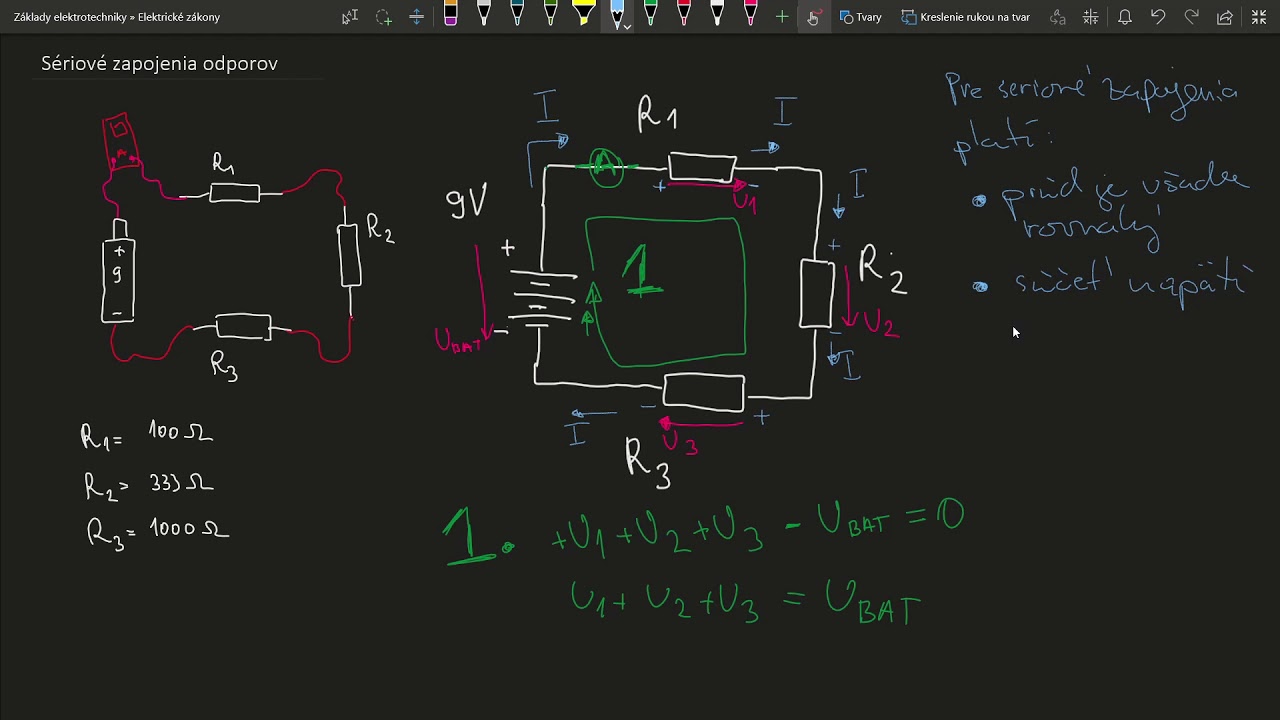 Základy elektrotechniky » Elektrické zákony
Tvary
Kreslenie rukou na tvar
Sériové zapojenia odporov
A
R1
R2
+
9
-
R3
R1= 100Ω
R2= 333Ω
R3= 1000Ω
I
R1
I
A
+ -
U1
I
9V
+
-
UBAT
1
+
R2
U2
-
I
- +
I
U3
R3
Pre seriové zapojenia
platí:
• prúd je všade
rovnaký
• súčet napätí
1. +U1+U2+U3-UBAT=0
U1+U2+U3=UBAT